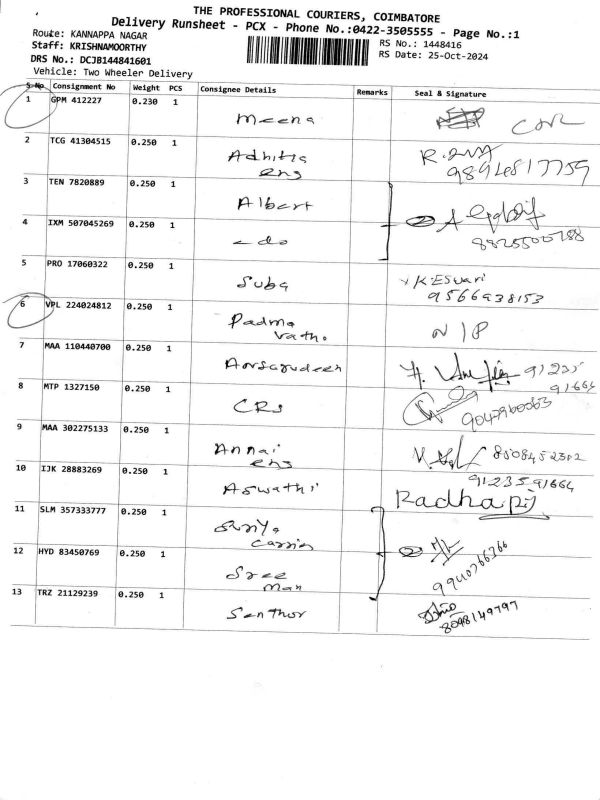 THE PROFESSIONAL COURIERS, COIMBATORE
Delivery Runsheet - PCX - Phone No.:0422-3505555 - Page No.:1
Route: KANNAPPA NAGAR
RS No.: 1448416
Staff: KRISHNAMOORTHY
RS Date: 25-Oct-2024
DRS No.: DCJB144841601
Vehicle: Two Wheeler Delivery
S No Consignment No Weight PCS Consignee Details Remarks Seal & Signature
1 GPM 412227 0.230 1 Meena
2 TCG 41304515 0.250 1 Adhitia
ens
3 TEN 7820889 0.250 1 Albert
4 IXM 507045269 0.250 1 - do
8825500788
5 PRO 17060322 0.250 1 Suba K. Eswari
9566938153
6 VPL 224024812 0.250 1 Padma N/P
Vathi
7 MAA 110440700 0.250 1 91235
91664
8 MTP 1327150 0.250 1 CRS
9 MAA 302275133 0.250 1 Annai
ens
10 IJK 28883269 0.250 1 Aswathi 9123591664
Radha
11 SLM 357333777 0.250 1 Suriya
Carrier
12 HYD 83450769 0.250 1 Sree
man
9940766366
13 TRZ 21129239 0.250 1 Senthor
8098149797